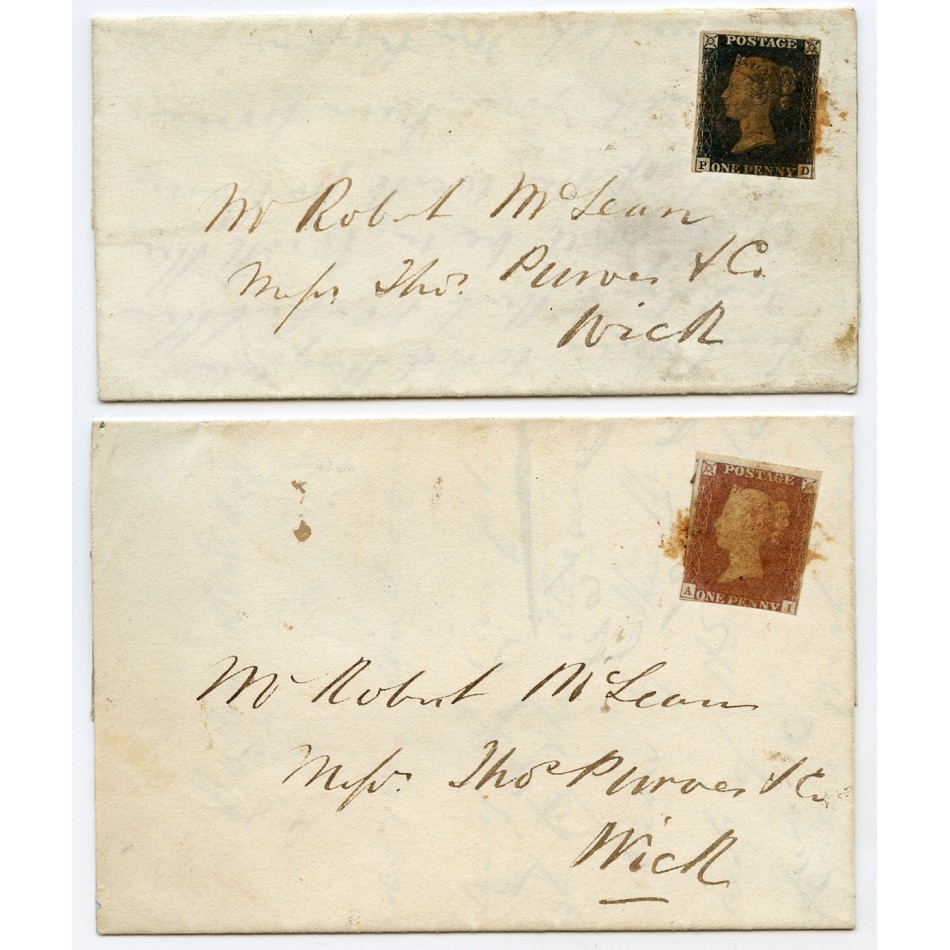 POSTAGE
P ONE PENNY D
Mr Robert McLean
Messrs Thos. Purves & Co.
Wick
POSTAGE
A ONE PENNY I
Mr Robert McLean
Messrs Thos Purves & Co.
Wick